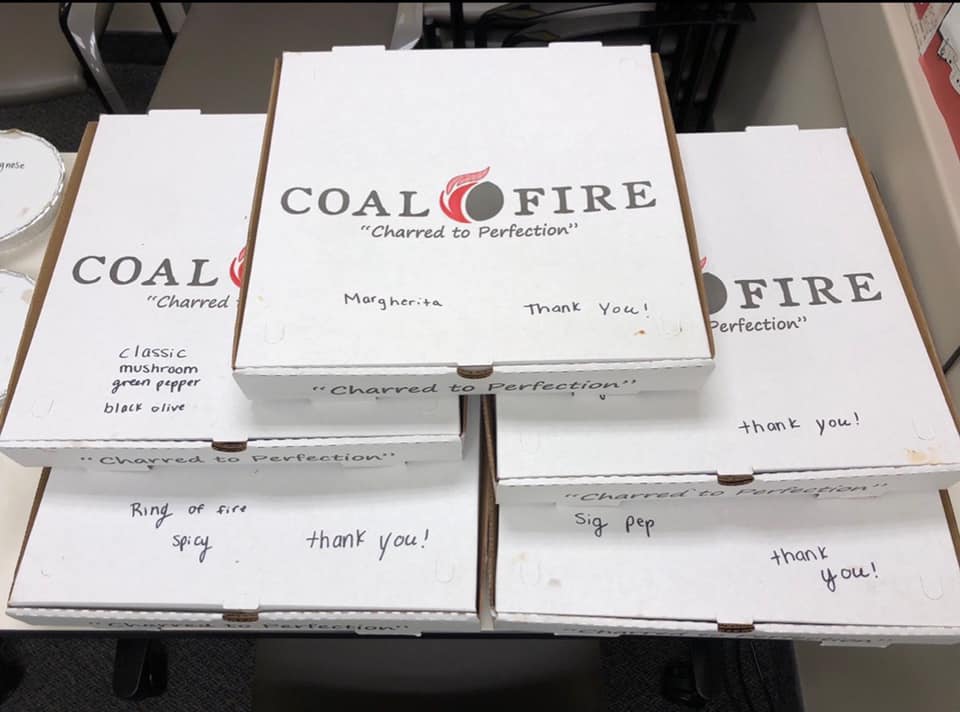 COAL FIRE
"Charred to Perfection"
Margherita
Thank You!
"Charred to Perfection"
COAL
"Charred
classic
mushroom
green pepper
black olive
"Charred to Perfection"
FIRE
Perfection"
thank you!
"Charred to Perfection"
Ring of fire
spicy
thank you!
"Charred to Perfection"
Sig pep
thank
you!
"Charred to Perfection"